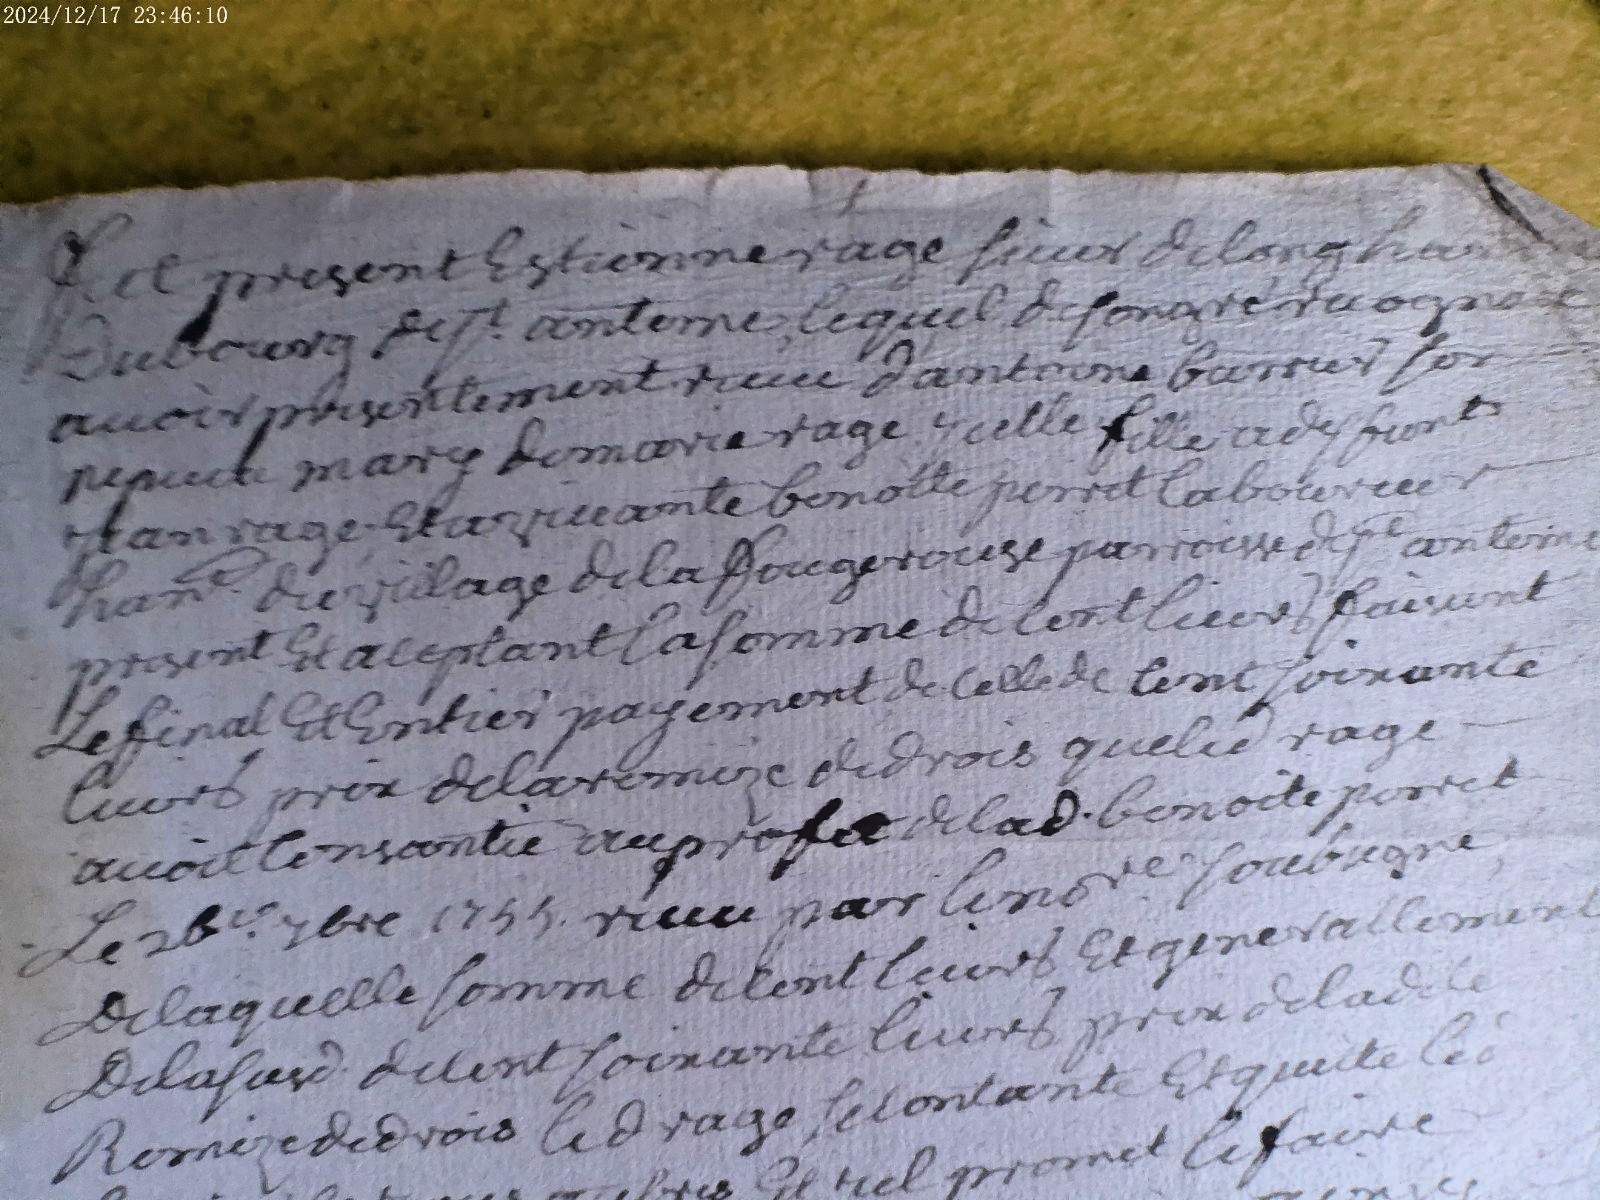 2024/12/17 23:46:10
present Estienne rage sieur de long
Dubourg de st. anteme, lequel de son gré recognoit
avoir presentement receu d'antoine barrier
mary de marie rage icelle fille a deffunts
rage Et a vivante benoitte perret laboureur
du village de la fougerouse parroisse de st anteme
present Et aceptant la somme de cent livres faisant
Le final Et Entier payement de celle de cent soixante
livres prix de la remize de drois que led rage
avoit consantie au profit de lad. benoite perret
Le 26e. 7bre 1755. receu par le nore soubsigne,
De laquelle somme de cent livres Et generallement
De la susd. de cent soixante livres prix de ladite
Remize de drois led rage, se contante Et quitte
promet le faire